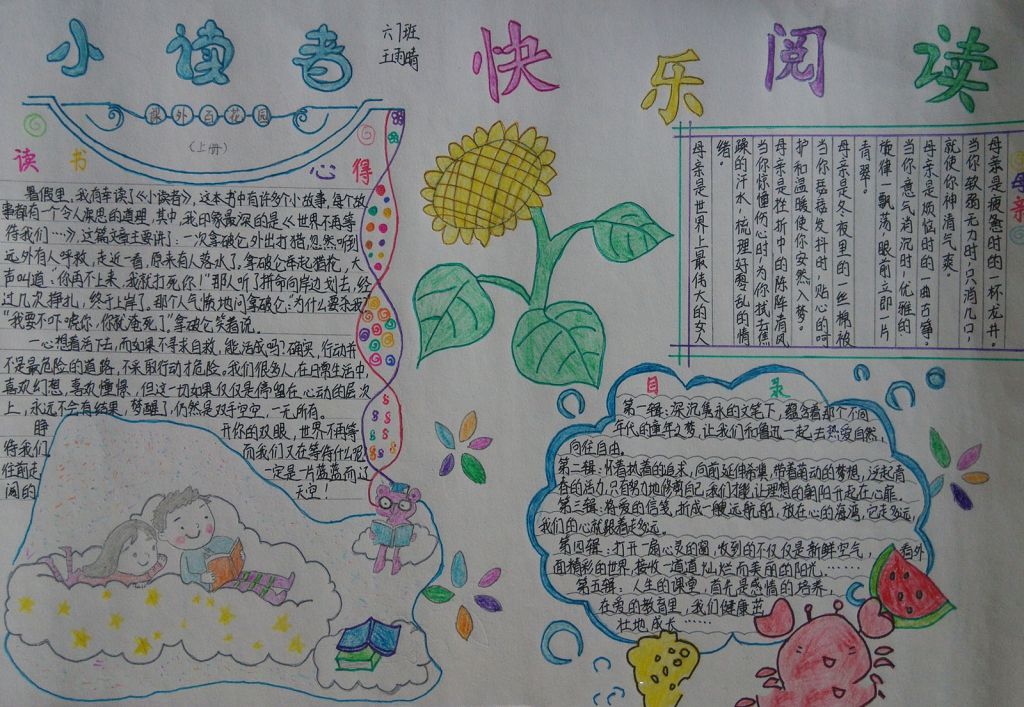 小读者
六(1)班
王雨晴
快乐阅读
课外百花园
(上册)
读书心得
暑假里,我有幸读了《小读者》,这本书中有许多个小故事,每个故
事都有一个令人深思的道理,其中,我印象最深的是《世界不再等
待我们…》,这篇文章主要讲了:一次拿破仑外出打猎,忽然听到
远外有人呼救,走近一看,原来有人落水了,拿破仑举起猎枪,大
声叫道:"你再不上来,我就打死你!"那人听了拼命向岸边划去,经
过几次挣扎,终于上岸了。那个人气愤地问拿破仑:"为什么要杀我?"
"我要不吓唬你,你就淹死了。"拿破仑笑着说。
一心想着活下去,而如果不寻求自救,能活成吗?确实,行动并
不是最危险的道路,不采取行动才危险。我们很多人,在日常生活中,
喜欢幻想,喜欢憧憬,但这一切如果仅仅是停留在心动的层次
上,永远不会有结果,梦醒了,仍然是双手空空,一无所有。
睁开你的双眼,世界不再等
待我们,而我们又在等待什么呢
往前走,一定是一片蓝蓝而辽
阔的天空!
母亲
母亲是疲惫时的一杯龙井,
当你软弱无力时,只消几口,
就使你神清气爽。
母亲是烦恼时的一曲古筝,
当你意气消沉时,优雅的
旋律一飘荡,眼前立即一片
青翠。
母亲是冬夜里的一丝棉被
当你瑟瑟发抖时,贴心的呵
护和温暖使你安然入梦。
母亲是挫折中的阵阵清风
当你惊惶伤心时,为你拭去焦
躁的汗水,梳理好零乱的情
绪。
母亲是世界上最伟大的女人
目录
第一辑:深沉隽永的文笔下,蕴含着那个不同
年代的童年之梦,让我们和鲁迅一起去热爱自然,
向往自由。
第二辑:怀着执着的追求,向前延伸希冀,带着萌动的梦想,泛起青
春的活力,只有努力地修剪自己,我们才懂,让理想的朝阳升起在心扉。
第三辑:将爱的信笺,折成一艘远航船,放在心的海湾,它走多远,
我们的心就跟着走多远。
第四辑:打开一扇心灵的窗,收到的不仅仅是新鲜空气,看外
面精彩的世界,接收一道道灿烂而美丽的阳光。……
第五辑:人生的课堂,首先是感情的培养,
在爱的教育里,我们健康茁
壮地成长……